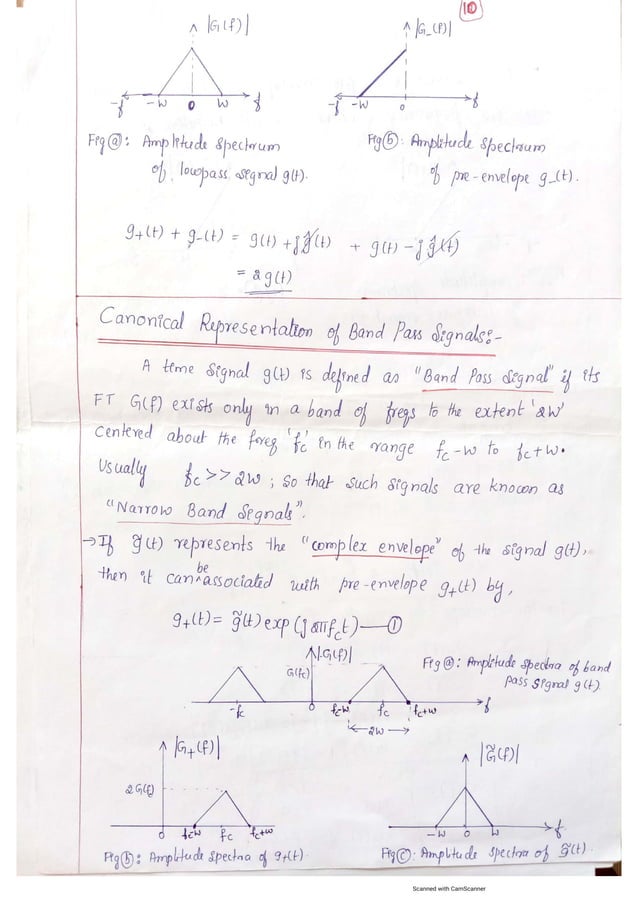 10
|G(f)|
|G_(f)|
-f -W 0 W f
-f -W 0 f
Fig ⓐ: Amplitude Spectrum
of lowpass signal g(t).
Fig ⓑ: Amplitude Spectrum
of pre-envelope g_(t).
g+(t) + g-(t) = g(t) + jĝ(t) + g(t) - jĝ(t)
= 2g(t)
Canonical Representation of Band Pass Signals:-
A time Signal g(t) is defined as "Band Pass Signal" if its
FT G(f) exists only in a band of freqs to the extent '2W'
centered about the freq 'fc' in the range fc-W to fc+W.
Usually fc >> 2W ; so that such signals are known as
"Narrow Band Signals".
→ If g̃(t) represents the "complex envelope" of the signal g(t),
then it can be associated with pre-envelope g+(t) by,
g+(t) = g̃(t) exp (j2πfct) — ①
|G(f)|
G(fc)
-fc 0 fc-W fc fc+W f
2W
Fig ⓐ: Amplitude Spectra of band
pass Signal g(t).
|G+(f)|
2G(fc)
0 fc-W fc fc+W
Fig ⓑ: Amplitude spectra of g+(t).
|G̃(f)|
-W 0 W f
Fig ⓒ: Amplitude Spectra of g̃(t).
Scanned with CamScanner